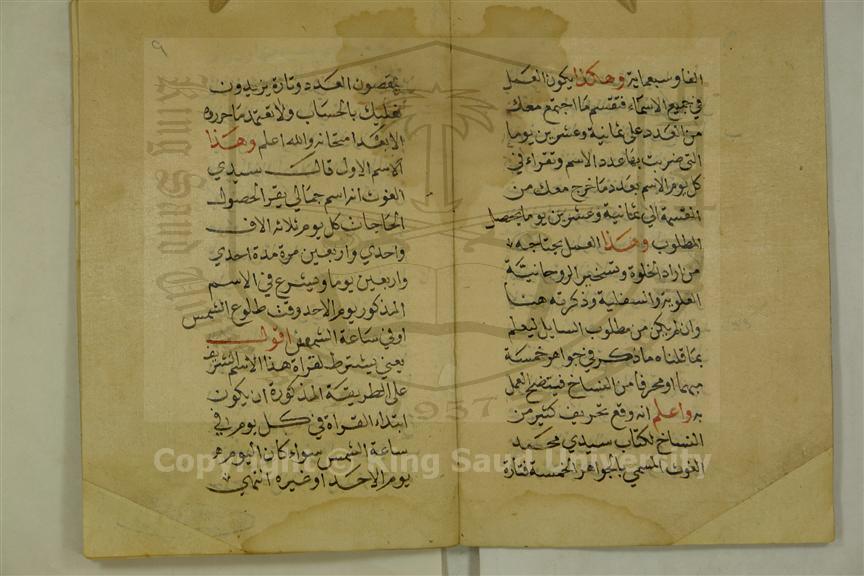 الفا وسبعماية وهكذا يكون العمل
في جميع الاسماء فتقسم ما اجتمع معك
من العدد على ثمانية وعشرين يوما
التي ضربت بها عدد الاسم وتقراء في
كل يوم الاسم بعدد ما خرج معك من
القسمة الي ثمانية وعشرين يوما يحصل
المطلوب وهذا العمل يحتاجه
من اراد الخلوة وتسخير الروحانية
العلوية والسفلية وذكرته هنا
وان لم يكن من مطلوب السايل ليعلم
بما قلناه ما ذكر في جواهر خمسة
مبهما او محرفا من النساخ فيتضح العمل
به واعلم انه وقع تحريف كثير من
النساخ لكتاب سيدي محمد
الغوث المسمي بالجواهر الخمسة فتارة
٩
ينقصون العدد وتارة يزيدون
فعليك بالحساب ولا تعتمد ما حرره
الا بعد امتحانه والله اعلم وهذا
الاسم الاول قال سيدي
الغوث انه اسم جمالي يقرا لحصول
الحاجات كل يوم ثلاثة الاف
واحدي واربعين مرة مدة احدي
واربعين يوما ويشرع في الاسم
المذكور يوم الاحد وقت طلوع الشمس
او في ساعة الشمس اقول
يعني يشترط لقراة هذا الاسم الشريف
على الطريقة المذكورة ان يكون
ابتداء القراة في كل يوم في
ساعة الشمس سواء كان اليوم
يوم الاحد او غيره انتهي
King Saud University
1957
Copyright © King Saud University